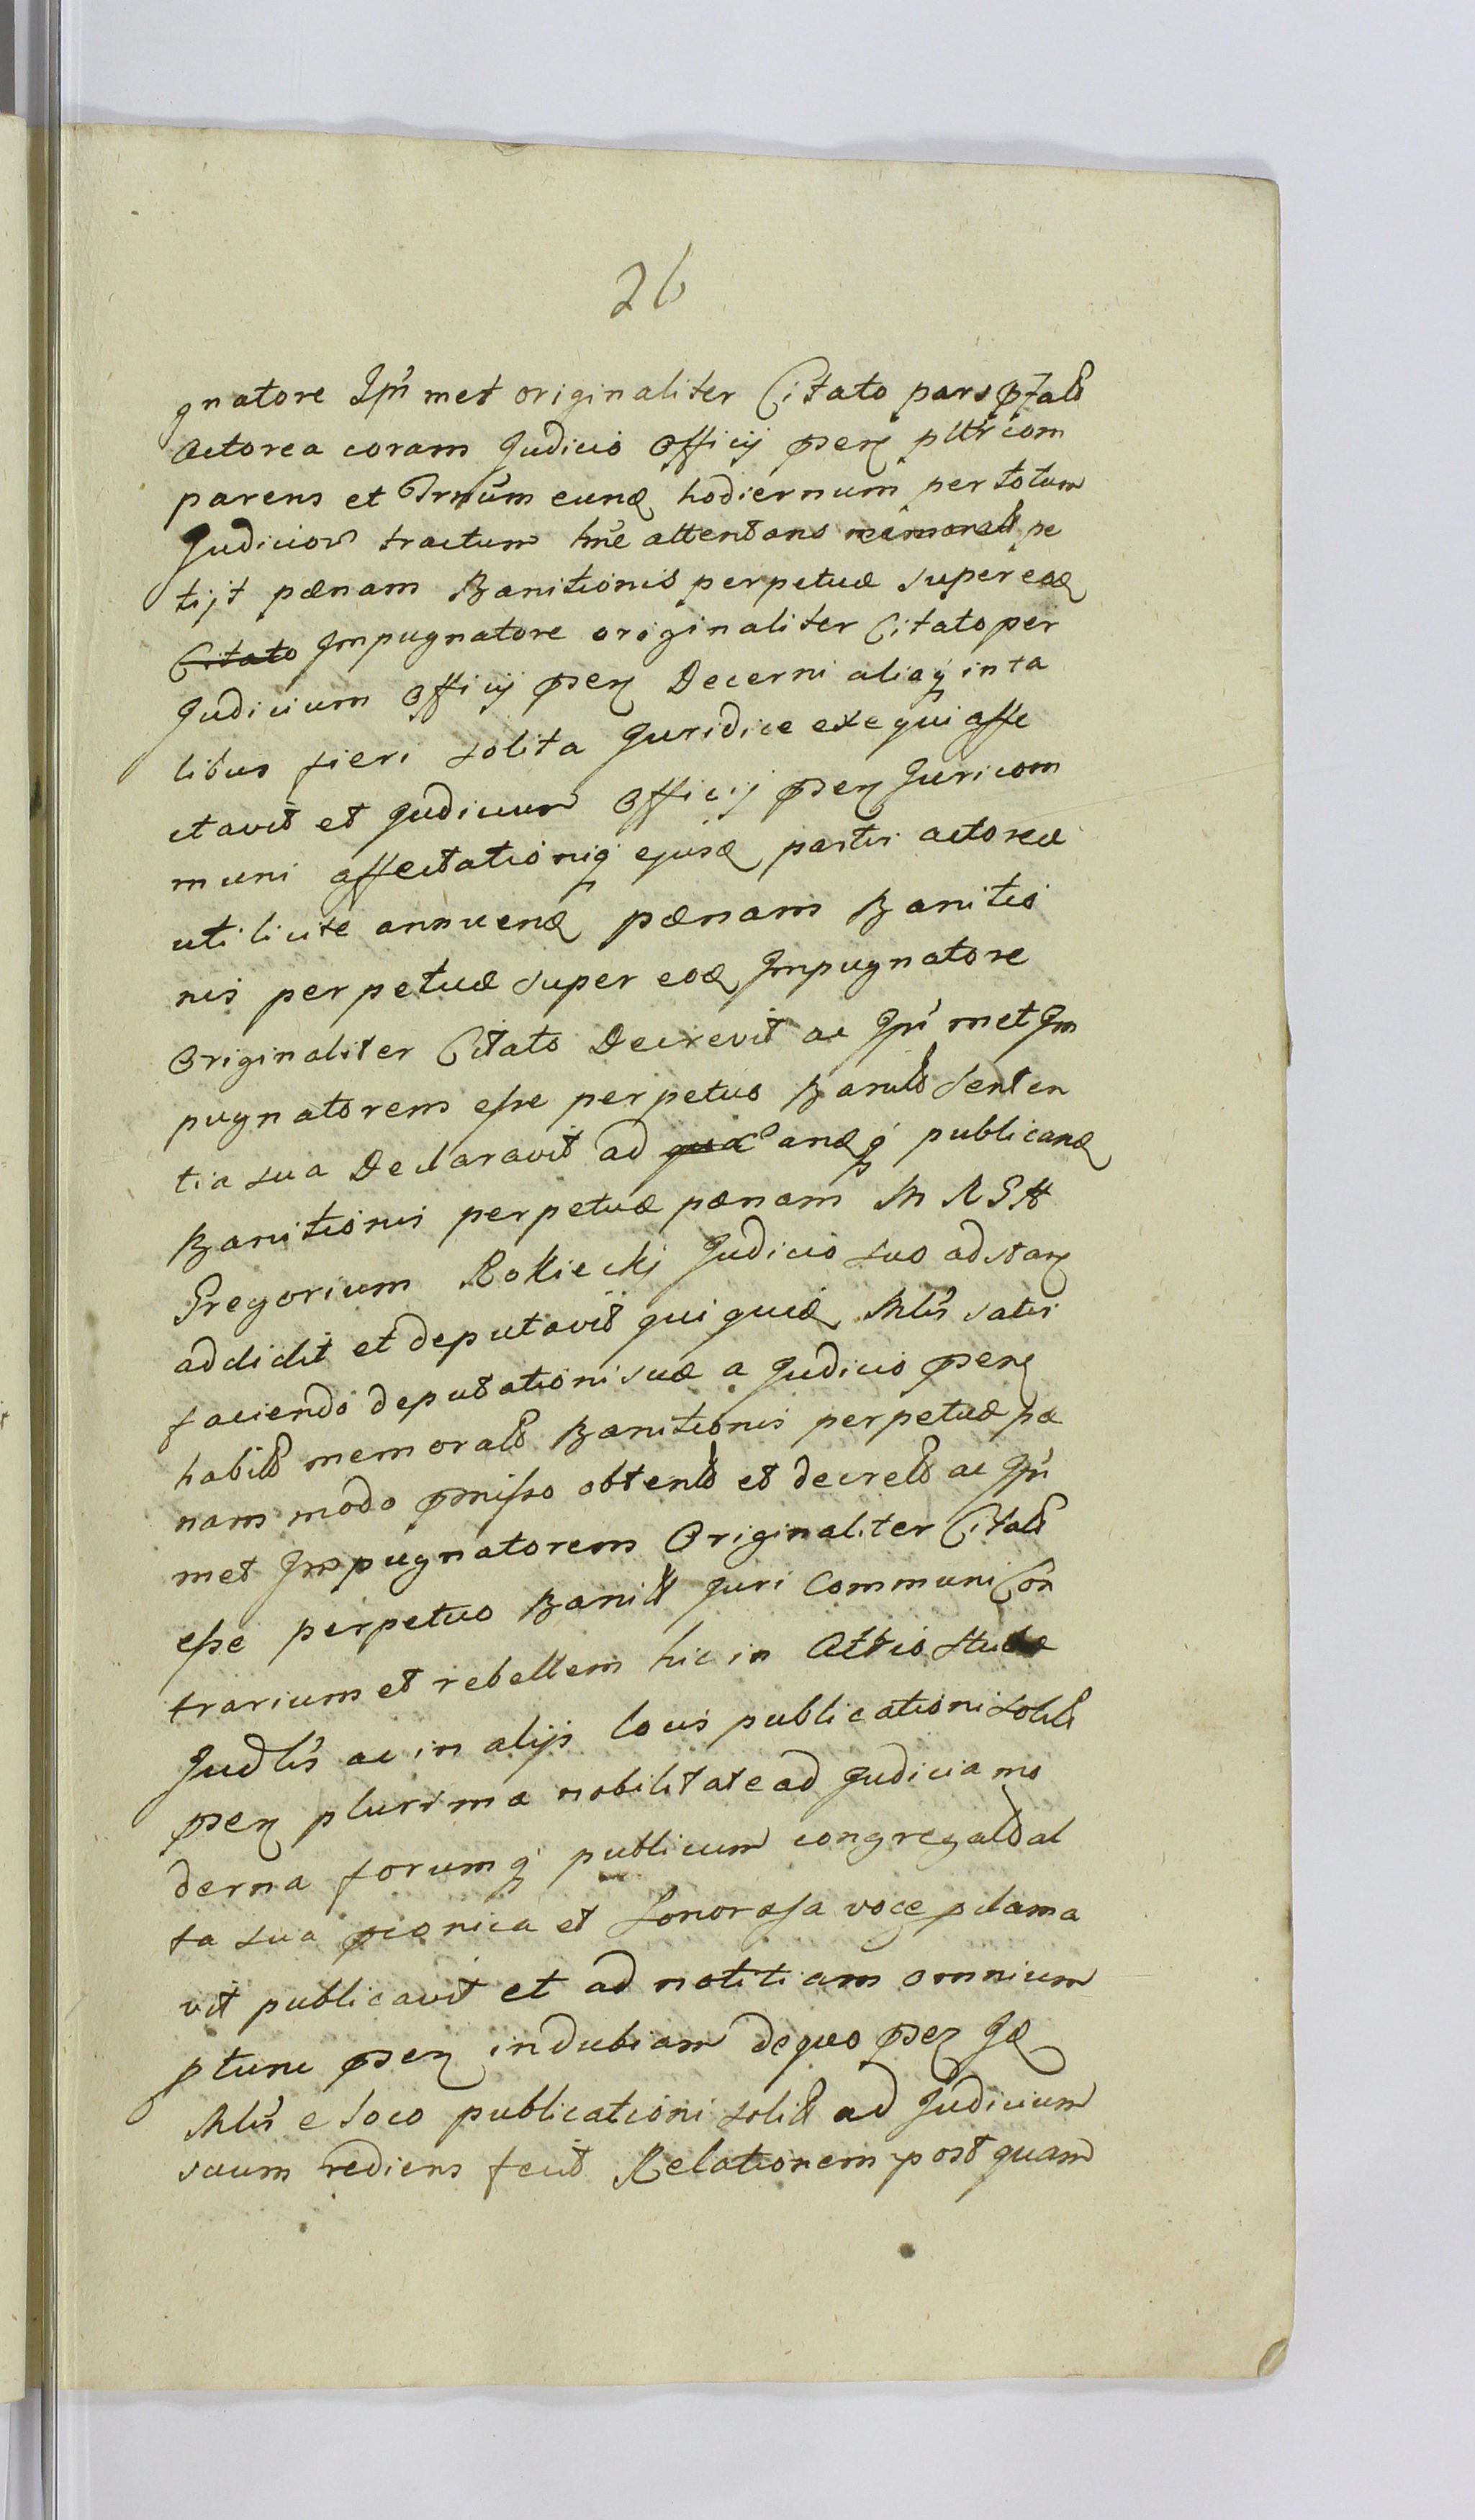 26
gnatore Ipſi met originaliter Citato pars
actorea coram Judicio Officij pltr com
parens et Trnum eund hodiernum per totum
Judicior tractum hme attentans memorat pe
tijt pænam Banitionis perpetuæ super eod
Citato Impugnatore originaliter Citato per
Judicium Officij Decerni aliaq in ta
libus fieri solita Juridice exequi affe
ctavit et Judicium Officij Juri com
muni affectationiq ejusd partis actoreæ
uti licite annuend pænam Banitio
nis perpetuæ super eod Impugnatore
Originaliter Citato Decrevit ac Ipſ met Im
pugnatorem eſse perpetuo Banit Senten
tia sua Declaravit ad quã andq publicand
Banitionis perpetuæ pænam M R G H
Gregorium Rokiecki Judicio suo adstan
addidit et deputavit qui quid Mlis satis
faciendo deputationi suæ a Judicio
habit memorat Banitionis perpetuæ pæ
nam modo pmiſso obtent et decret ac Ipſ
met Impugnatorem Originaliter Citat
eſse perpetuo Banit Juri Communi Con
trarium et rebellem hic in Attio Stubæ
Judlis ac in alijs locis publicationi solit
plurima nobilitate ad Judicia mo
derna forumq publicum congregat al
ta sua pconica et Sonorosa voce pclama
vit publicavit et ad notitiam omnium
ptunc indubiam de quo Id
Mlis e loco publicationi solit ad Judicium
suum rediens fecit Relationem post quam